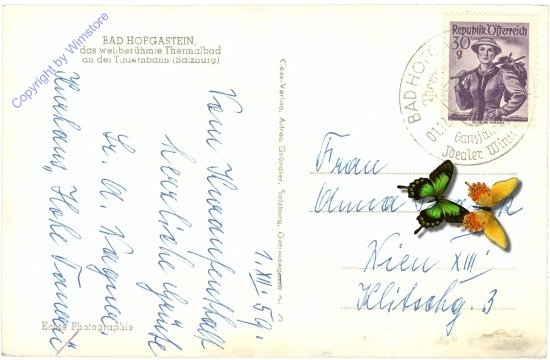 Copyright by Wimstore
BAD HOFGASTEIN,
das weltberühmte Thermalbad
an der Tauernbahn (Salzburg)
1. XII. 59.
Vom Kuraufenthalt
herzliche Grüße
Kurhaus, Hohe Tauern
Echte Photographie
Cosy-Verlag, Alfred Gründler, Salzburg,
Republik Österreich
30
g
BAD HOFG
01.12
Ganzjähr
Idealer Wint
Frau
Anna
Wien XIII
Klitschg. 3